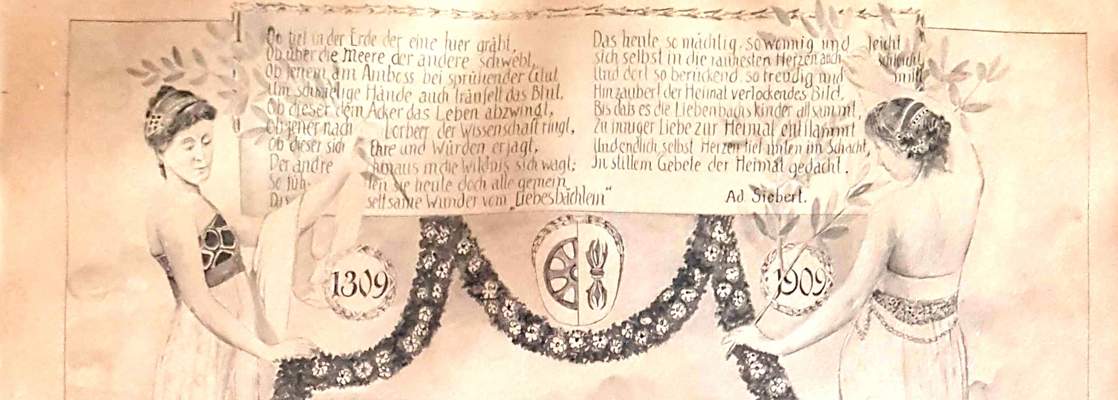 Ob tief in der Erde der eine hier gräbt,
Ob über die Meere der andere schwebt,
Ob jenem am Amboss bei sprühender Glut
Um schwielige Hände auch träufelt das Blut,
Ob dieser dem Acker das Leben abzwingt,
Ob jener nach Lorbeer der Wissenschaft ringt,
Ob dieser sich Ehre und Würden erjagt,
Der andre hinaus in die Wildnis sich wagt:
So füh- len sie heute doch alle gemein
Das seltsame Wunder vom „Liebesbächlein"
Das heute so mächtig, so wonnig und leicht
sich selbst in die rauhesten Herzen auch schleicht
Und dort so berückend, so freudig und mild
Hinzaubert der Heimat verlockendes Bild.
Bis dass es die Liebenbachskinder all
Zu inniger Liebe zur Heimat entflammt
Und endlich selbst Herzen tief unten im Schacht,
In stillem Gebete der Heimat gedacht.
Ad. Siebert.
1309
1909